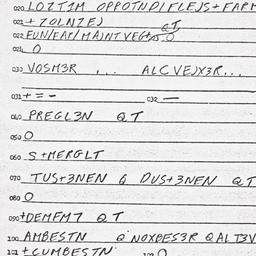 020 LOZTIM OPPOTUDIFLEJS+FARM
021 + ZOLNZEJ
022 EUN/EAP/MAINTVEGts.O QT
024 O
030 VOSM3R ... ALCVEJX3R...
031 + = - 032 —
040 PREGL3N QT
050 O
060 S+MERGLT
070 TUS+3NEN Q DUS+3NEN QT
080 O
090 +DEMFM7 QT
100 AMBESTN Q NOXBES3R QALT3V
101 + CUMBESTN 102 O